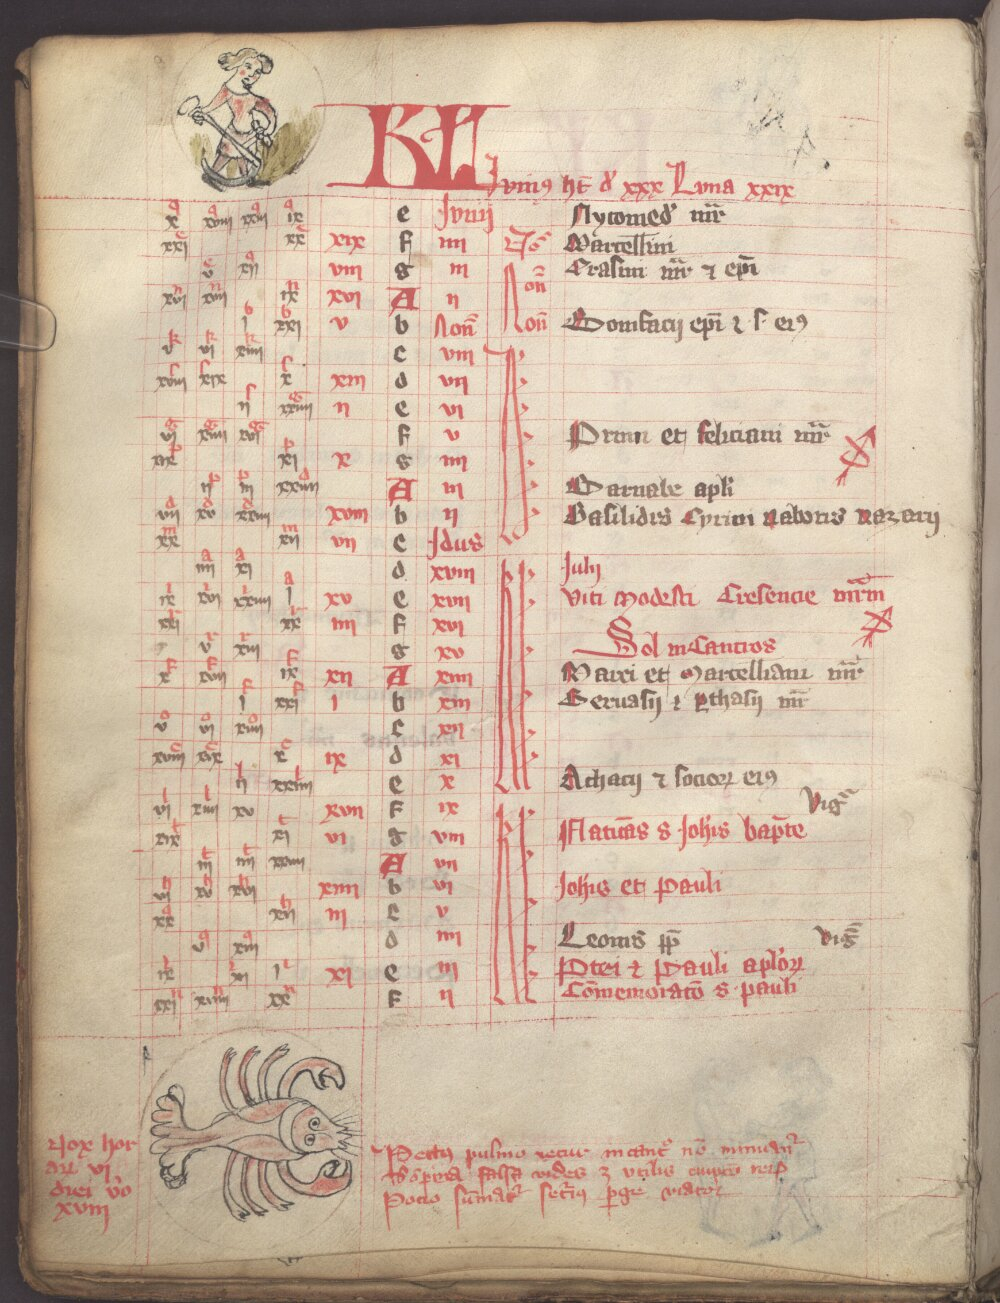 KL
Junius ht d xxx Luna xxix
x xviii xxiii ix e Junij Nycomed mr
xxi xx xix f iiii No Marcellini
v xii viii g iii Erasmi mr et epi
xvi xviii ix xvi A ii Non
i xxi v b Non Non Bonifacij epi et s eius
v vi xiiii c viii
xviii xix x xiii d vii
ii xxiiii ii e vi
vi xiiii xvi f v Primi et feliciani mr
xix xi x g iiii
ii iii xxiiii A iii Barnabe apli
vii xv xxiii xviii b ii Basilidis Cyrini Naboris Nazarij
xx xii vii c Idus
iiii xi d xviii Julij
ix xvi xxiiii i xv e xvii Viti Modesti Cresencie mrm
xxi xx iiii f xvi
v xiii g xv Sol in Cancros
x xviii ix xii A xiiii Marci et Marcelliani mr
i xxi i b xiii Geruasij et pthasij mr
v vi xiiii c xii
xviii xix x ix d xi
ii xxiiii e x Achacij et socior eius
vi xiiii xv xvii f ix Vig
xix xi vi g viii Natiuitas s Johis bapte
iii iiii xxiiii A vii
vi xv xvi xiiii b vi Johis et Pauli
xx xii iii c v
v xiii d iiii Leonis pp vig
ix xi i xi e iii Petri et Pauli aplor
xxi xviii xx f ii Comemoracio s pauli
Nox hor
ar vi
diei vo
xviii
Pectus pulmo iecur in cancro non minuantur
falsa vides et utilis
Pocio sumatur securus perge viator